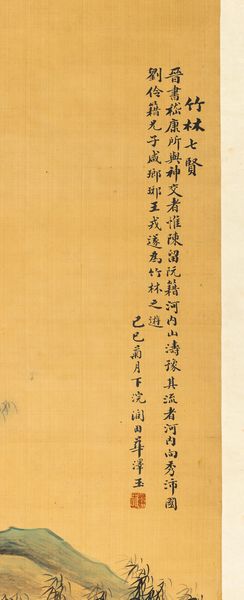 竹林七賢
晉書嵇康所與神交者惟陳留阮籍河內山濤豫其流者河內向秀沛國
劉伶籍兄子咸瑯琊王戎遂為竹林之遊
己巳菊月下浣潤田華澤玉